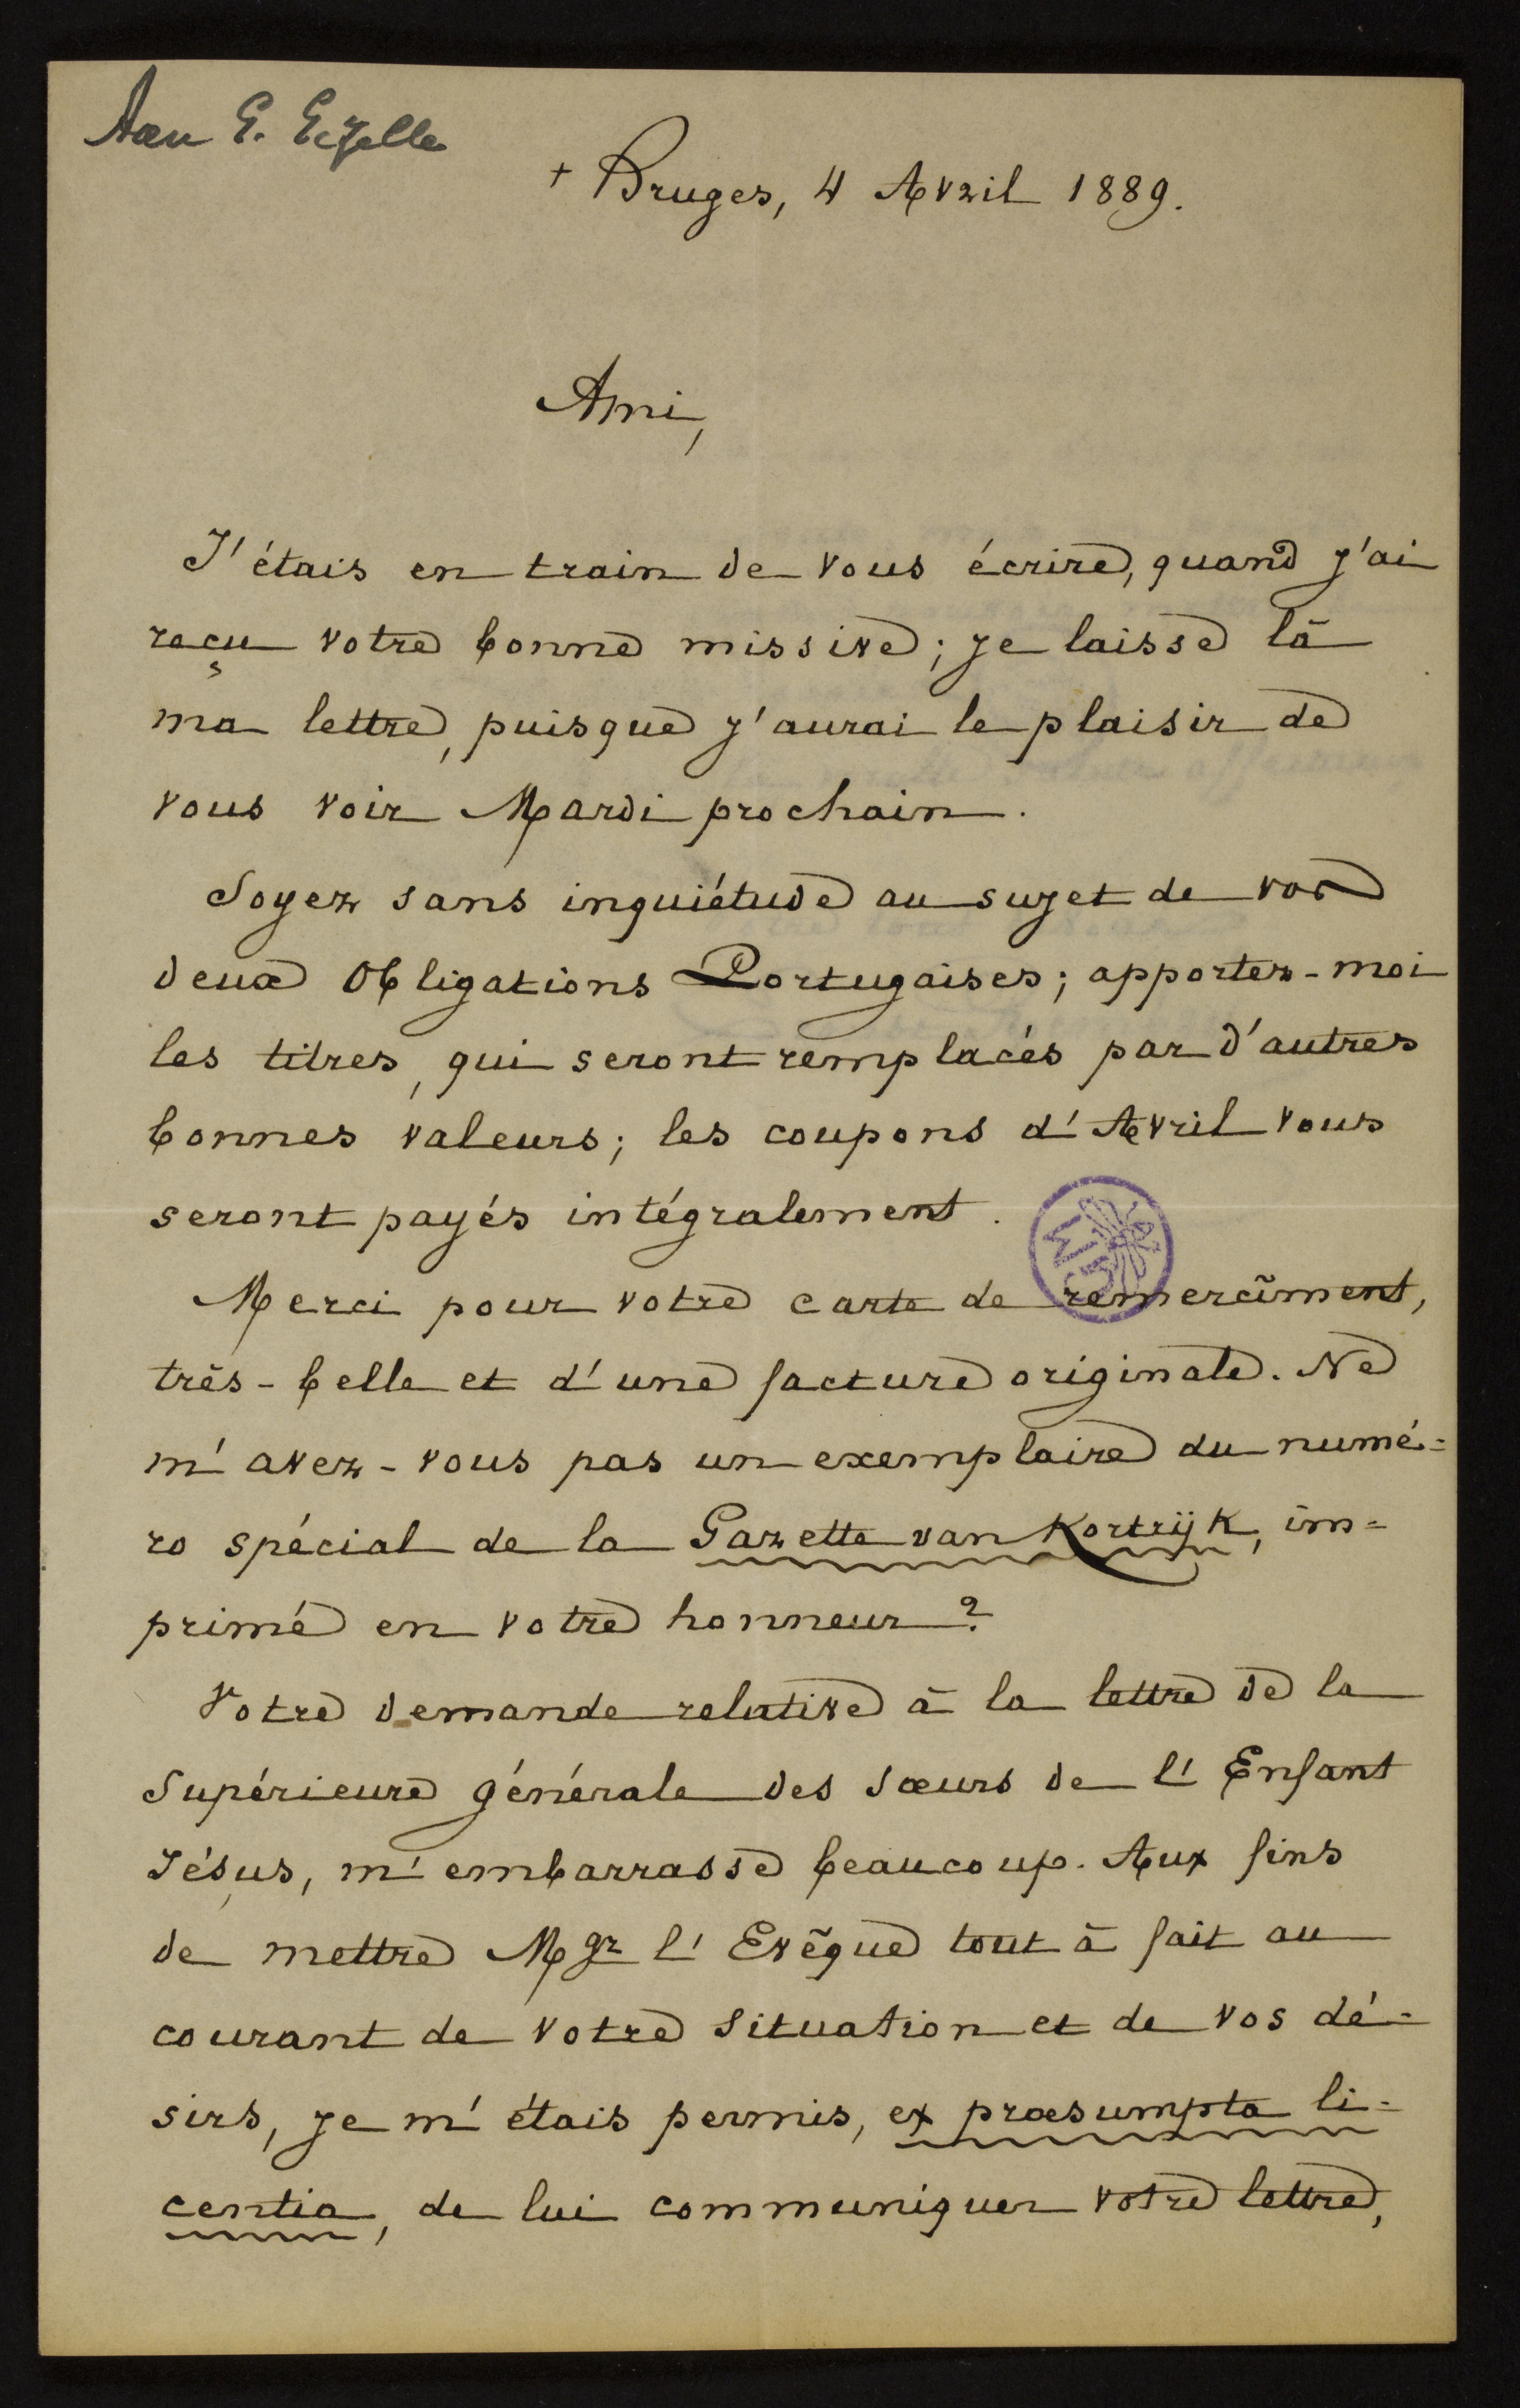 Aan G. Gezelle
+ Bruges, 4 Avril 1889.
Ami,
J'étais en train de vous écrire, quand j'ai
reçu votre bonne missive; je laisse là
ma lettre, puisque j'aurai le plaisir de
vous voir Mardi prochain.
Soyez sans inquiétude au sujet de vos
deux Obligations Portugaises; apportez-moi
les titres, qui seront remplacés par d'autres
bonnes valeurs; les coupons d'Avril vous
seront payés intégralement.
Merci pour votre carte de remercîment,
très-belle et d'une facture originale. Ne
m'avez-vous pas un exemplaire du numé=
ro spécial de la Gazette van Kortrijk, im=
primé en votre honneur?
Votre demande relative à la lettre de la
Supérieure générale des Sœurs de l'Enfant
Jésus, m'embarrasse beaucoup. Aux fins
de mettre Mgr l'Evêque tout à fait au
courant de votre situation et de vos dé=
sirs, je m'étais permis, ex præsumpta li=
centia, de lui communiquer votre lettre,